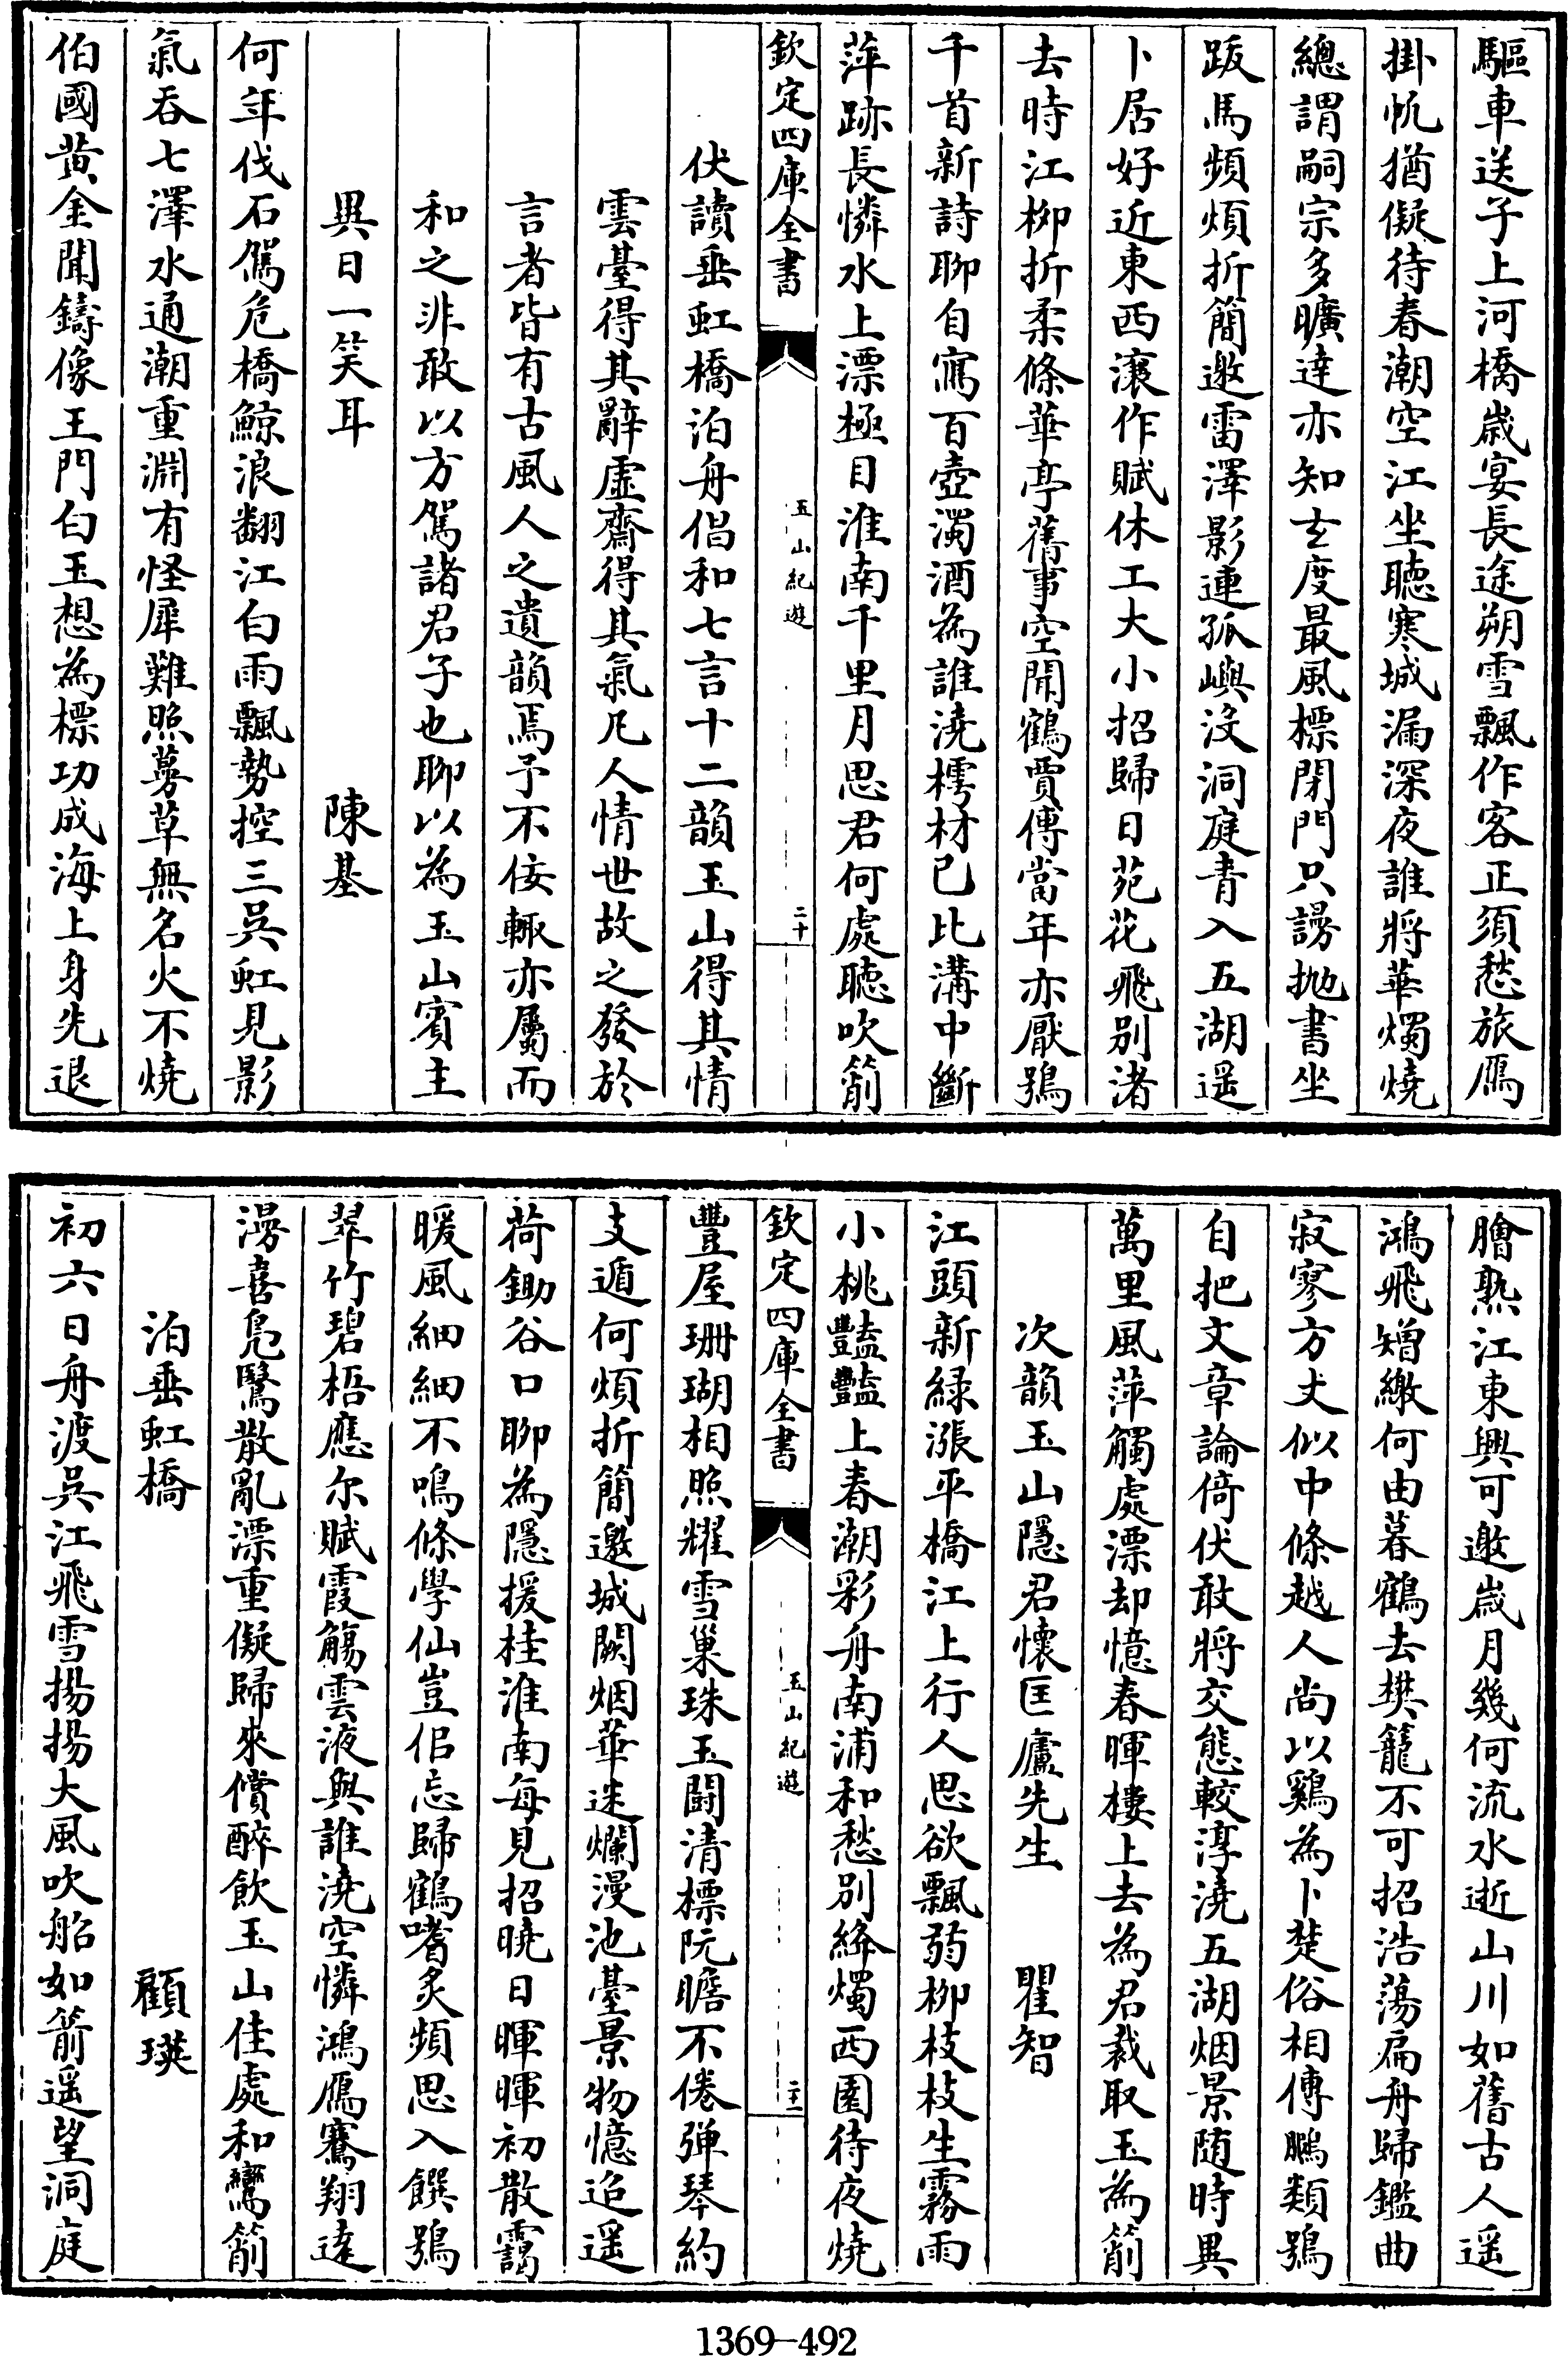 驅車送子上河橋歲宴長途朔雪飄作客正須愁旅鴈
掛帆猶儗待春潮空江坐聴寒城漏深夜誰將華燭燒
總謂嗣宗多曠達亦知玄度最風標閉門只謾抛書坐
跋馬頻煩折簡邀雷澤影連孤嶼没洞庭青入五湖遥
卜居好近東西瀼作賦休工大小招歸日苑花飛別渚
去時江柳折柔條華亭舊事空聞鶴賈傅當年亦厭鴞
千首新詩聊自寫百壺濁酒為誰澆樗材已比溝中斷
萍跡長憐水上漂極目淮南千里月思君何處聴吹簫
欽定四庫全書
玉山紀遊
二十
伏讀垂虹橋泊舟倡和七言十二韻玉山得其情
雲臺得其辭虛齋得其氣凡人情世故之發於
言者皆有古風人之遺韻焉予不佞輒亦屬而
和之非敢以方駕諸君子也聊以為玉山賓主
異日一笑耳
陳基
何年伐石駕危橋鯨浪翻江白雨飄勢控三吳虹見影
氣吞七澤水通潮重淵有怪犀難照蔓草無名火不燒
伯國黄金聞鑄像王門白玉想為標功成海上身先退
膾熟江東興可邀歲月幾何流水逝山川如舊古人遥
鴻飛矰繳何由暮鶴去樊籠不可招浩蕩扁舟歸鑑曲
寂寥方丈似中條越人尚以鷄為卜楚俗相傳鵩類鴞
自把文章論倚伏敢將交態較淳澆五湖烟景随時異
萬里風萍觸處漂却憶春暉樓上去為君裁取玉為簫
次韻玉山隱君懷匡廬先生
瞿智
江頭新緑漲平橋江上行人思欲飄弱柳枝枝生霧雨
小桃豔豔上春潮彩舟南浦和愁別絳燭西園待夜燒
欽定四庫全書
玉山紀遊
二十一
豐屋珊瑚相照耀雪巢珠玉闘清標阮瞻不倦彈琴約
支遁何煩折簡邀城闕烟華迷爛漫池臺景物憶迢遥
荷鋤谷口聊為隱援桂淮南每見招曉日暉暉初散靄
暖風細細不鳴條學仙豈侣忘歸鶴嗜炙頻思入饌鴞
翠竹碧梧應尔賦霞觴雲液與誰澆空憐鴻鴈騫翔逹
漫喜鳬鷖散亂漂重儗歸來償醉飲玉山佳處和鸞簫
泊垂虹橋
顧瑛
初六日舟渡吳江飛雪揚揚大風吹船如箭遥望洞庭
1369-492